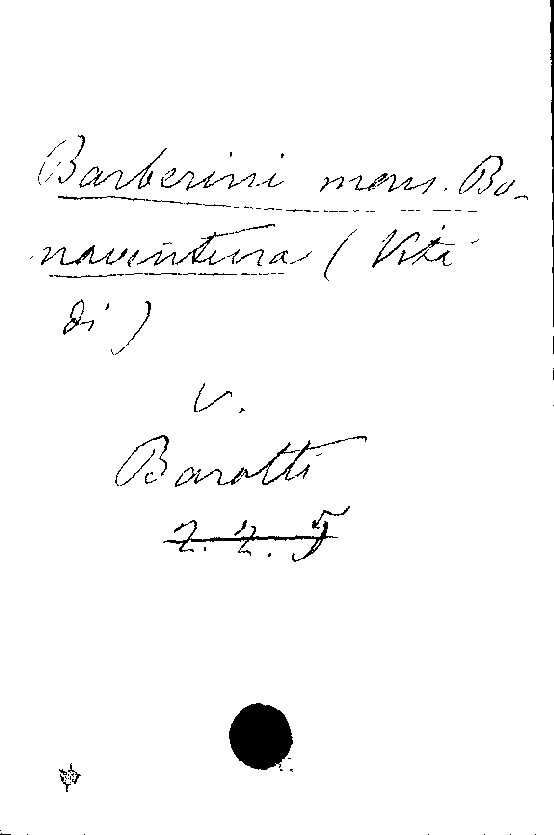 Barberini mons. Bo-
naventura (Vita
di)
v.
Barotti
2. 2. 5